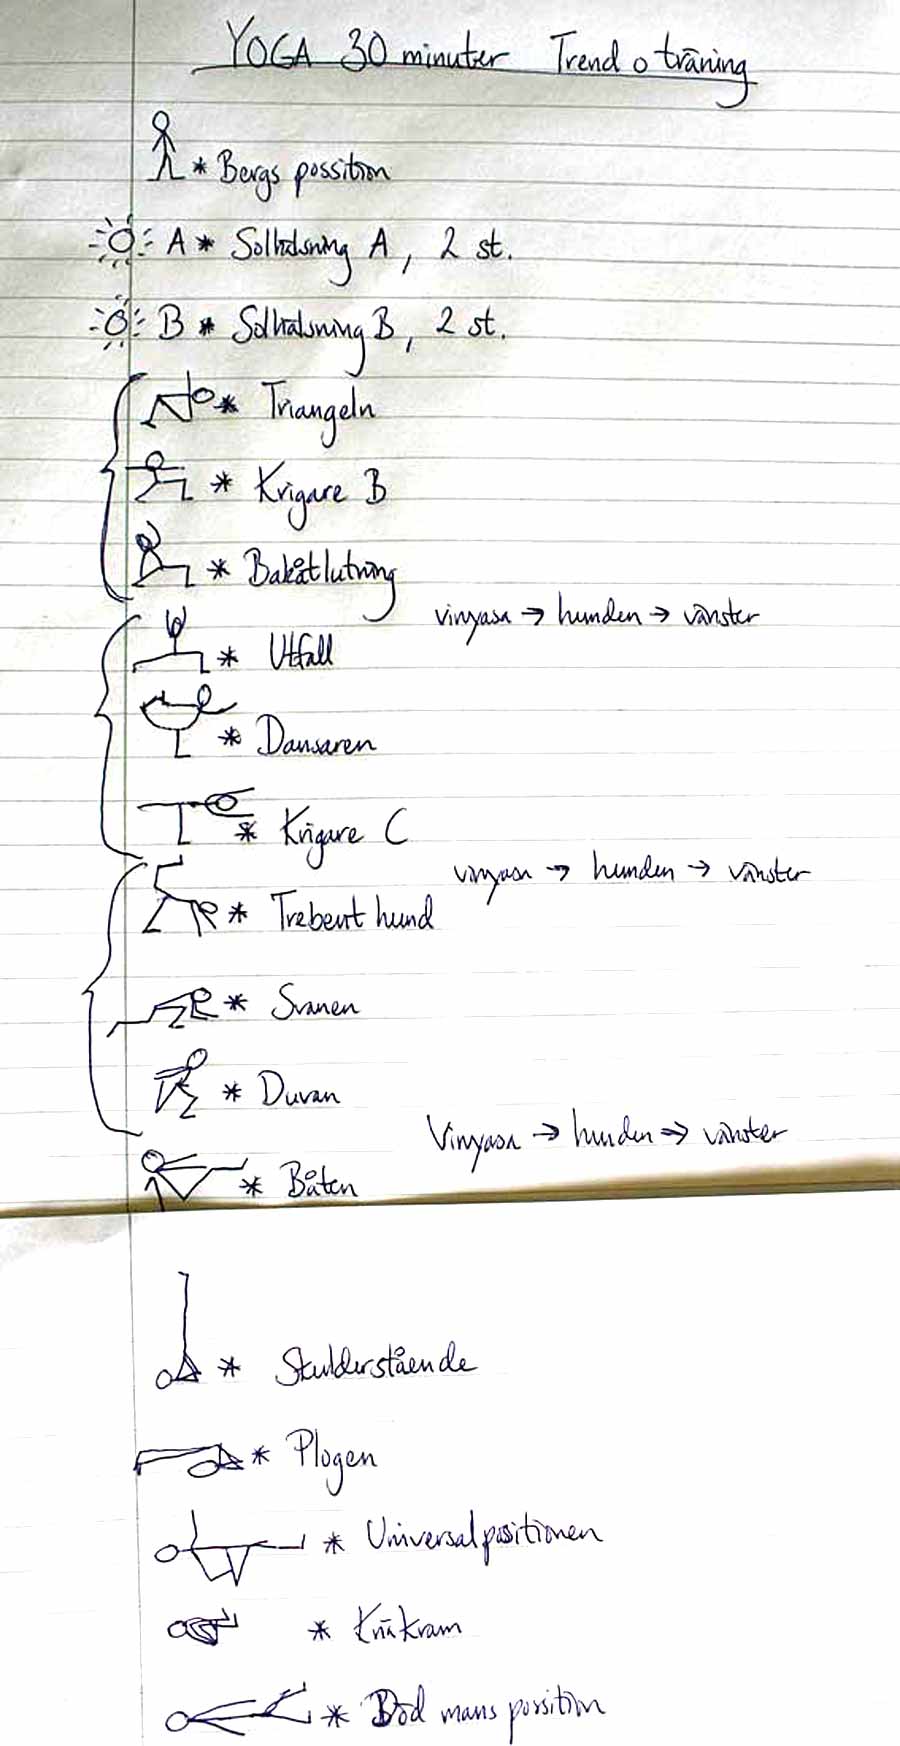 YOGA 30 minuter Trend o träning
* Bergs possition
A * Solhälsning A, 2 st.
B * Solhälsning B, 2 st.
* Triangeln
* Krigare B
* Bakåtlutning
vinyasa → hunden → vänster
* Utfall
* Dansaren
* Krigare C
vinyasa → hunden → vänster
* Trebent hund
* Svanen
* Duvan
Vinyasa → hunden → vänster
* Båten
* Skulderstående
* Plogen
* Universalpositionen
* Knäkram
* Död mans possition